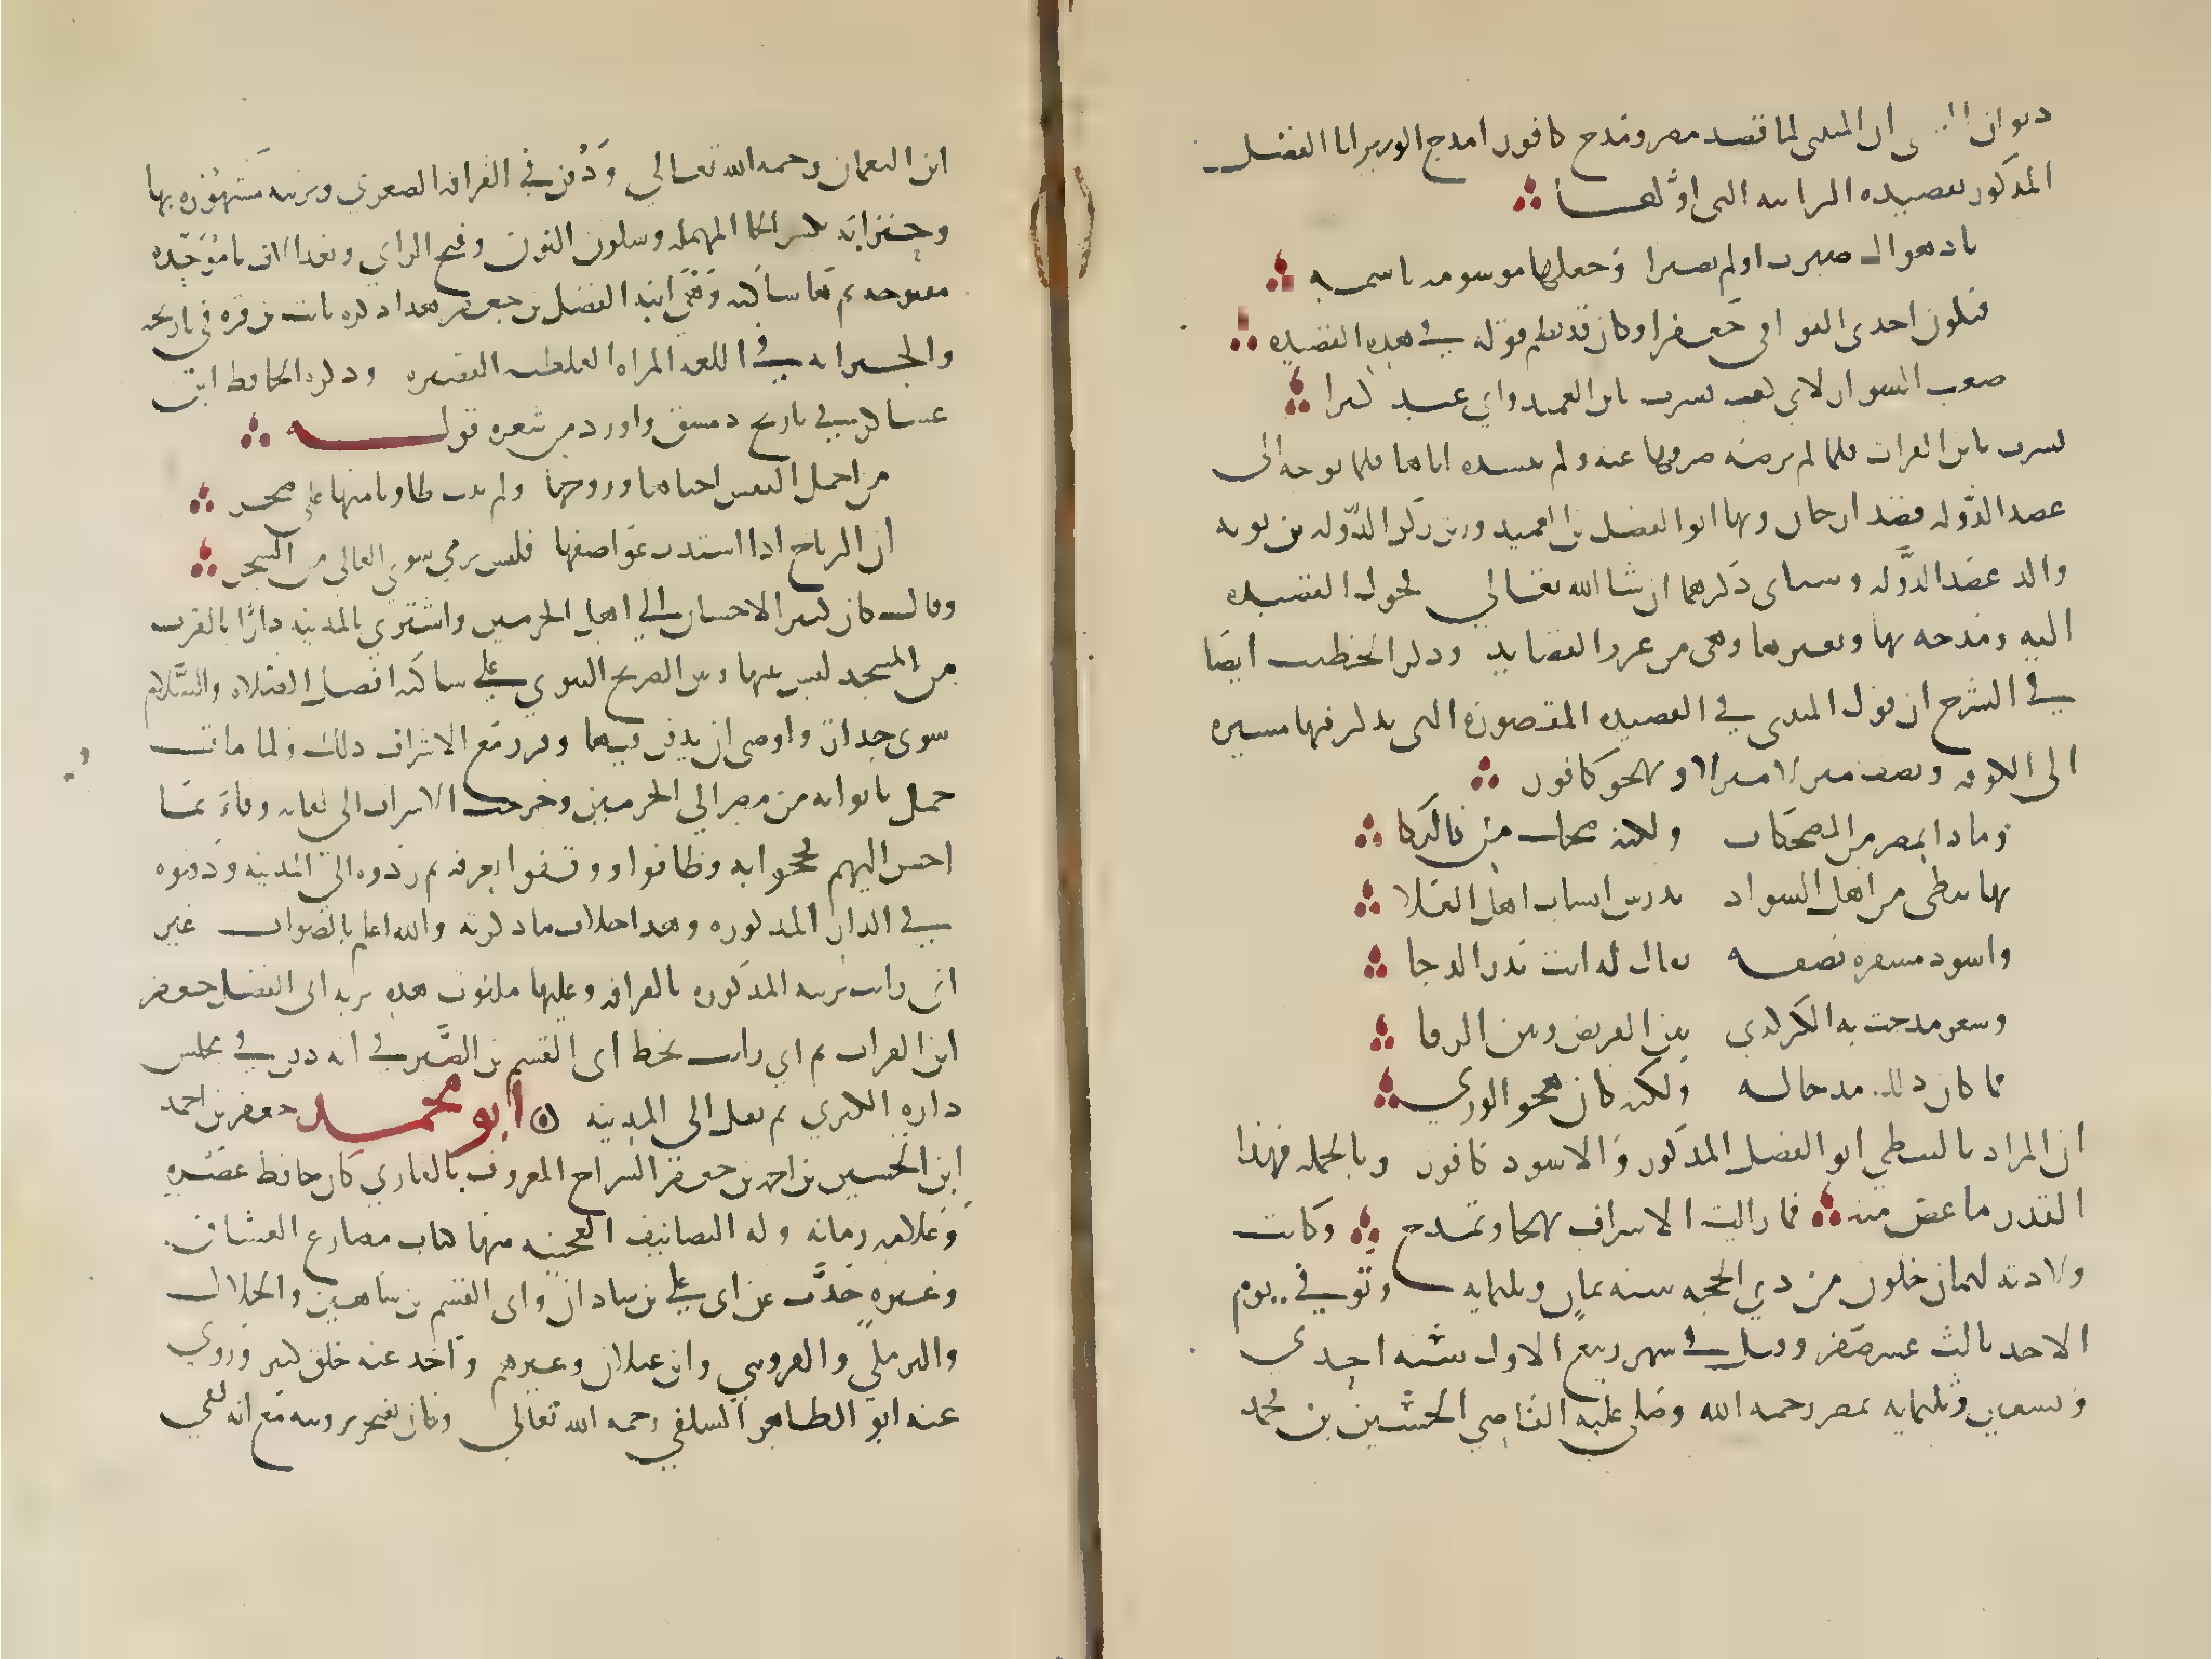 ديوان المتنبي ان المتنبي لما قصد مصر ومدح كافور امدح الوزير ابا الفضل
المذكور بقصيدته الرائية التي اولها
باد هواك صبرت او لم تصبرا وجعلها موسومة باسمه
فتكون احدى القوافي جعفرا وكان قد نظم قوله في هذه القصيدة
صغت السوار لاي كف بشرت بابن العميد واي عبد كبرا
بشرت بابن الفرات فلما لم يرضه صرفها عنه ولم ينشده اياها فلما توجه الى
عضد الدولة قصد ارجان وبها ابو الفضل بن العميد وزير ركن الدولة بن بويه
والد عضد الدولة وسياتي ذكرهما ان شا الله تعالي فحول القصيدة
اليه ومدحه بها وبغيرها وهي من غرر القصايد وذكر الخطيب ايضا
في الشرح ان قول المتنبي في القصيدة المقصورة التي يذكر فيها مسيره
الى الكوفة ويصف منزلا منزلا ويهجو كافور
وماذا بمصر من المضحكات ولكنه ضحك كالبكا
بها نبطي من اهل السواد يدرس انساب اهل الفلا
واسود مشفره نصفه يقال له انت بدر الدجا
وشعر مدحت به الكركدن بين القريض وبين الرقا
فما كان ذلك مدحا له ولكنه كان هجو الوري
ان المراد بالنبطي ابو الفضل المذكور والاسود كافور وبالجملة فهذا
القدر ما غض منه فما زالت الاشراف تهجا وتمدح وكانت
ولادته لثمان خلون من ذي الحجه سنه ثمان وثلثمايه وتوفي يوم
الاحد ثالث عشر صفر وقيل في شهر ربيع الاول سنه احدي
وتسعين وثلثمايه بمصر رحمه الله وصلى عليه القاضي الحسين بن محمد
ابن النعمان رحمه الله تعالي ودفن في القرافه الصغري وتربته مشهوره بها
وحنزابة بكسر الحا المهمله وسكون النون وفتح الزاي وبعد الالف با موحده
مفتوحه ثم ها ساكنه وهي ام ابيه الفضل بن جعفر هكذا ذكره ثابت بن قره في تاريخه
والحنزابه في اللغه المراه الغليظه القصيره وذكره الحافظ ابن
عساكر في تاريخ دمشق واورد من شعره قوله
من اخمل النفس احياها وروحها ولم يبت طاويا منها على ضجر
ان الرياح اذا اشتدت عواصفها فليس ترمي سوي العالي من الشجر
وقال كان كثير الاحسان الي اهل الحرمين واشتري بالمدينه دارا بالقرب
من المسجد ليس بينها وبين الضريح النبوي علي ساكنه افضل الصلاه والسلام
سوى جدار واوصى ان يدفن فيها وقرر مع الاشراف ذلك ولما مات
حمل تابوته من مصر الي الحرمين وخرجت الاشراف الى لقائه وفاء بما
احسن اليهم فحجوا به وطافوا ووقفوا بعرفه ثم ردوه الى المدينه ودفنوه
في الدار المذكوره وهذا خلاف ما ذكرته والله اعلم بالصواب غير
اني رايت تربته المذكوره بالقرافه وعليها مكتوب هذه تربه ابي الفضل جعفر
ابن الفرات ثم اني رايت بخط ابي القسم بن الصيرفي انه دفن في مجلس
داره الكبري ثم نقل الى المدينه ابو محمد جعفر بن احمد
ابن الحسين بن احمد بن جعفر السراج المعروف بالقاري كان حافظ عصره
وعلامه زمانه وله التصانيف العجيبه منها كتاب مصارع العشاق
وغيره حدث عن ابي علي بن شاذان وابي القسم بن شاهين والخلال
والبرمكي والقزويني وابن غيلان وغيرهم واخذ عنه خلق كثير وروي
عنه ابو الطاهر السلفي رحمه الله تعالى وكان يفتخر بروايته مع انه لقي